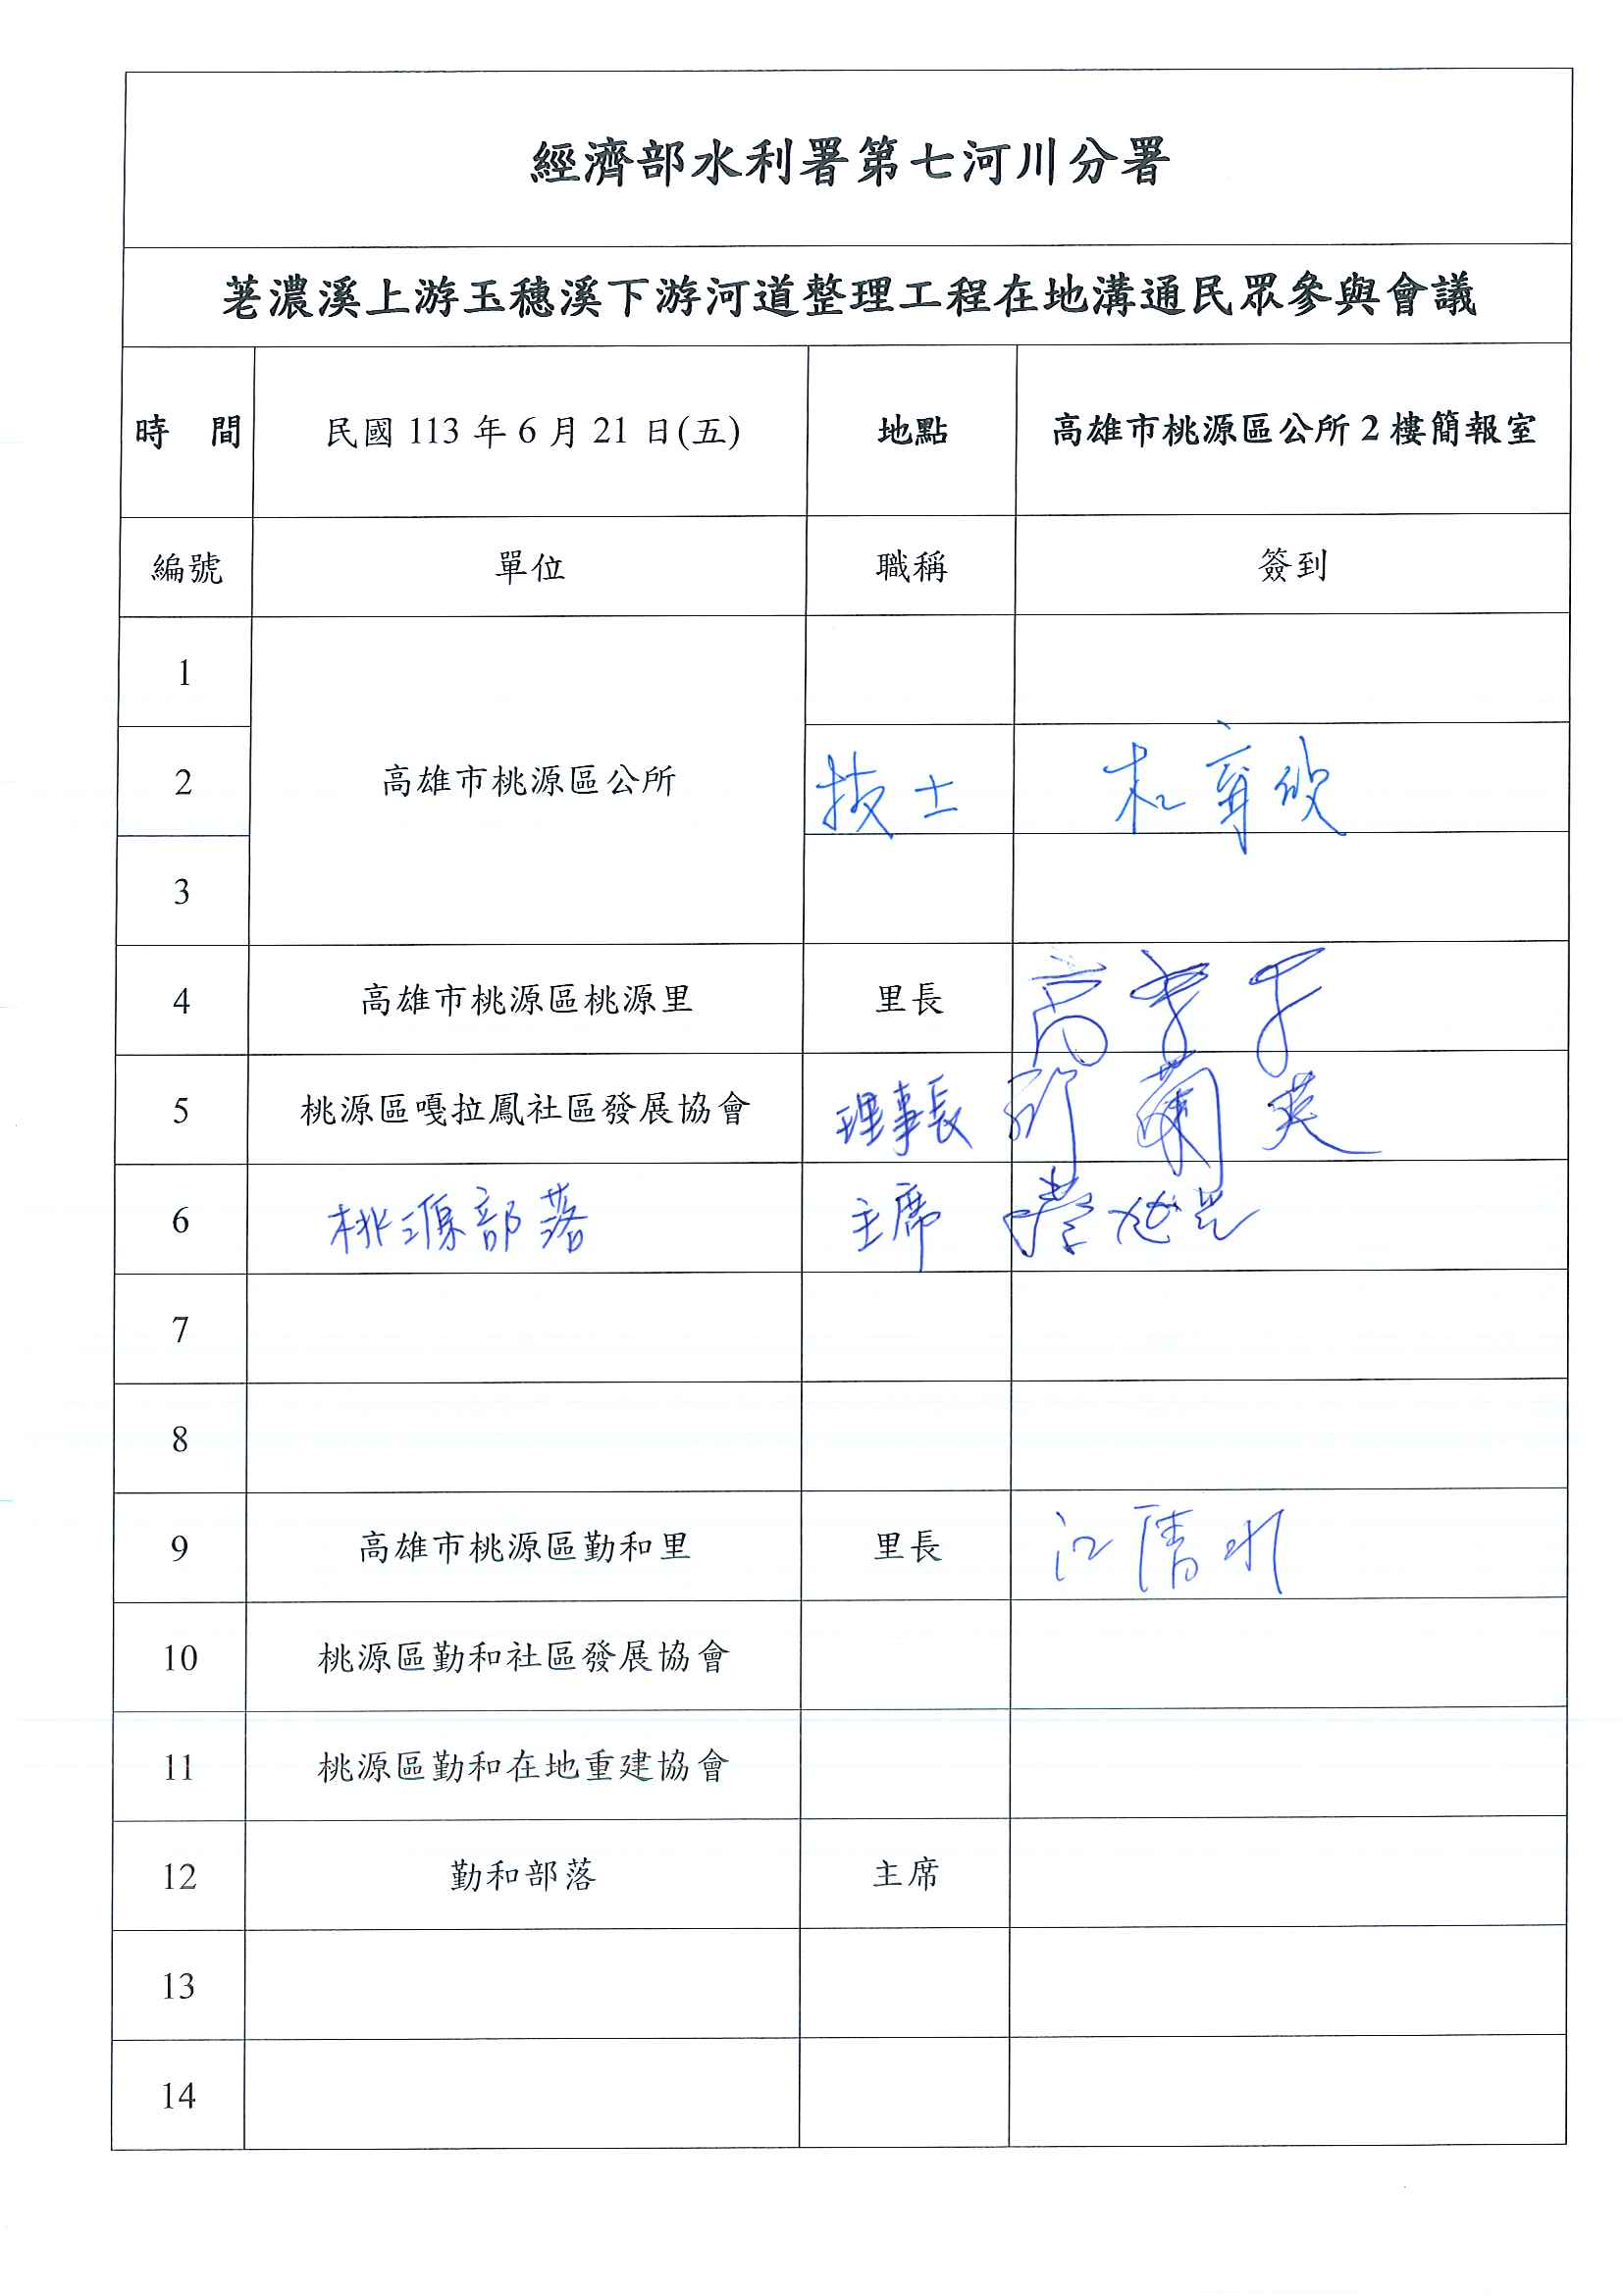 經濟部水利署第七河川分署
荖濃溪上游玉穗溪下游河道整理工程在地溝通民眾參與會議
時 間 民國 113 年 6 月 21 日(五) 地點 高雄市桃源區公所 2 樓簡報室
編號 單位 職稱 簽到
1
2 高雄市桃源區公所 技士
3
4 高雄市桃源區桃源里 里長
5 桃源區嘎拉鳳社區發展協會 理事長 英
6 桃源部落 主席
7
8
9 高雄市桃源區勤和里 里長 江清水
10 桃源區勤和社區發展協會
11 桃源區勤和在地重建協會
12 勤和部落 主席
13
14